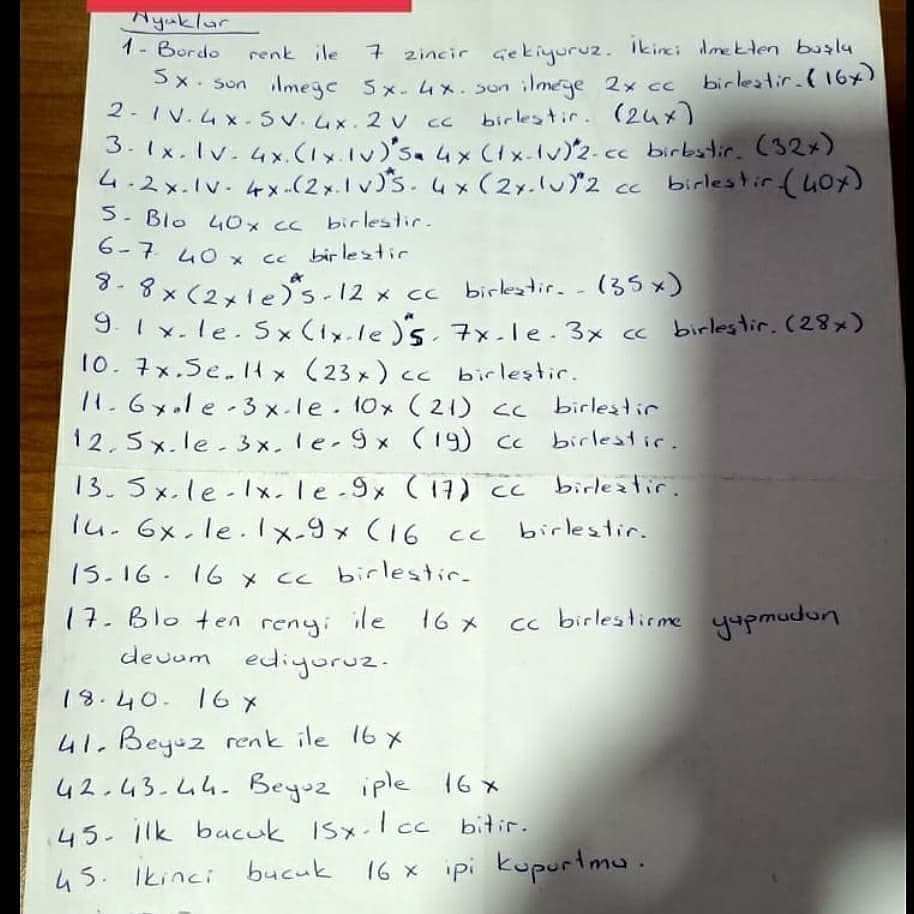 Ayaklar
1- Bordo renk ile 7 zincir çekiyoruz. İkinci ilmekten başla
5x. son ilmeğe 5x. 4x. son ilmeğe 2x cc birleştir. (16x)
2- 1v. 4x. 5v. 4x. 2v cc birleştir. (24x)
3. 1x. 1v. 4x. (1x. 1v)*5. 4x (1x. 1v)*2. cc birleştir. (32x)
4. 2x. 1v. 4x. (2x. 1v)*5. 4x (2x. 1v)*2 cc birleştir. (40x)
5- Blo 40x cc birleştir.
6-7. 40x cc birleştir
8. 8x (2x1e)*5. 12x cc birleştir. - (35x)
9. 1x. 1e. 5x (1x. 1e)*5. 7x. 1e. 3x cc birleştir. (28x)
10. 7x. 5e. 11x (23x) cc birleştir.
11. 6x. 1e. 3x. 1e. 10x (21) cc birleştir
12. 5x. 1e. 3x. 1e. 9x (19) cc birleştir.
13. 5x. 1e. 1x. 1e. 9x (17) cc birleştir.
14. 6x. 1e. 1x. 9x (16 cc birleştir.
15-16. 16x cc birleştir.
17. Blo ten rengi ile 16x cc birleştirme yapmadan
devam ediyoruz.
18.40. 16x
41. Beyaz renk ile 16x
42.43.44. Beyaz iple 16x
45. ilk bacak 15x. 1cc bitir.
45. İkinci bacak 16x ipi kopartma.